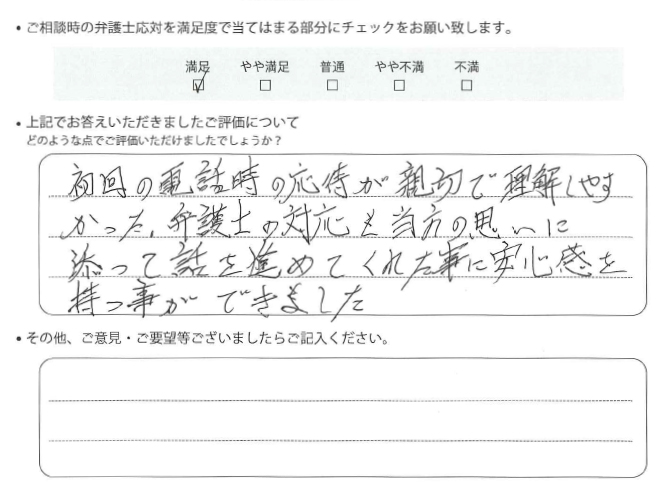 ・ご相談時の弁護士応対を満足度で当てはまる部分にチェックをお願い致します。
満足 やや満足 普通 やや不満 不満
・上記でお答えいただきましたご評価について
どのような点でご評価いただけましたでしょうか？
初回の電話時の応待が親切で理解しやす
かった。弁護士の対応も当方の思いに
添って話を進めてくれた事に安心感を
持つ事ができました
・その他、ご意見・ご要望等ございましたらご記入ください。